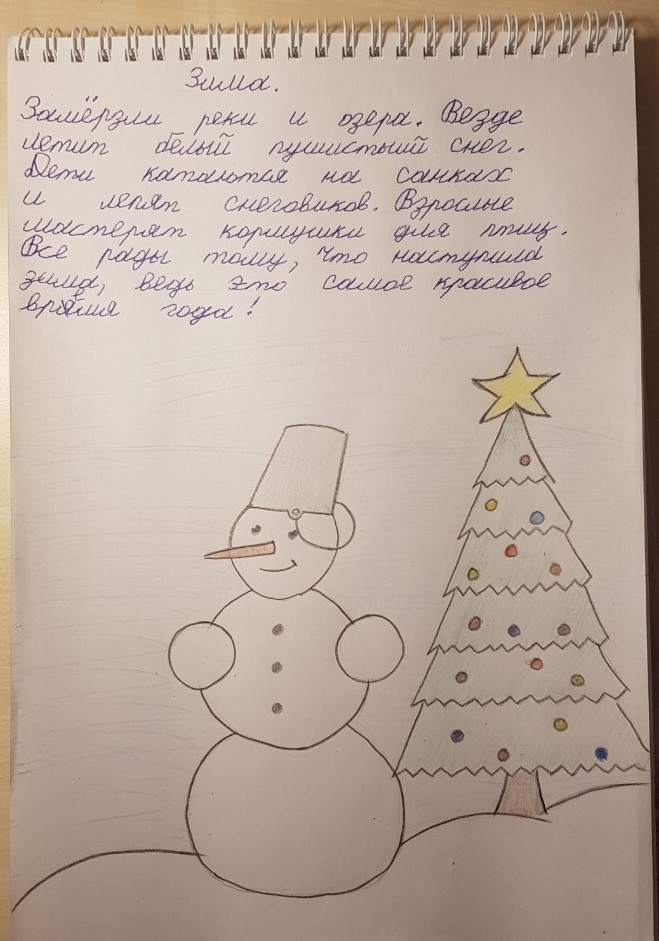 Зима.
Замёрзли реки и озера. Везде
летит белый пушистый снег.
Дети катаются на санках
и лепят снеговиков. Взрослые
мастерят кормушки для птиц.
Все рады тому, что наступила
зима, ведь это самое красивое
время года!